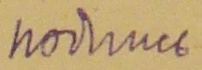 подпись